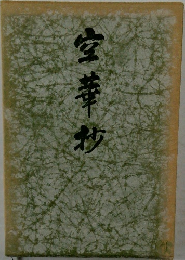 空華抄